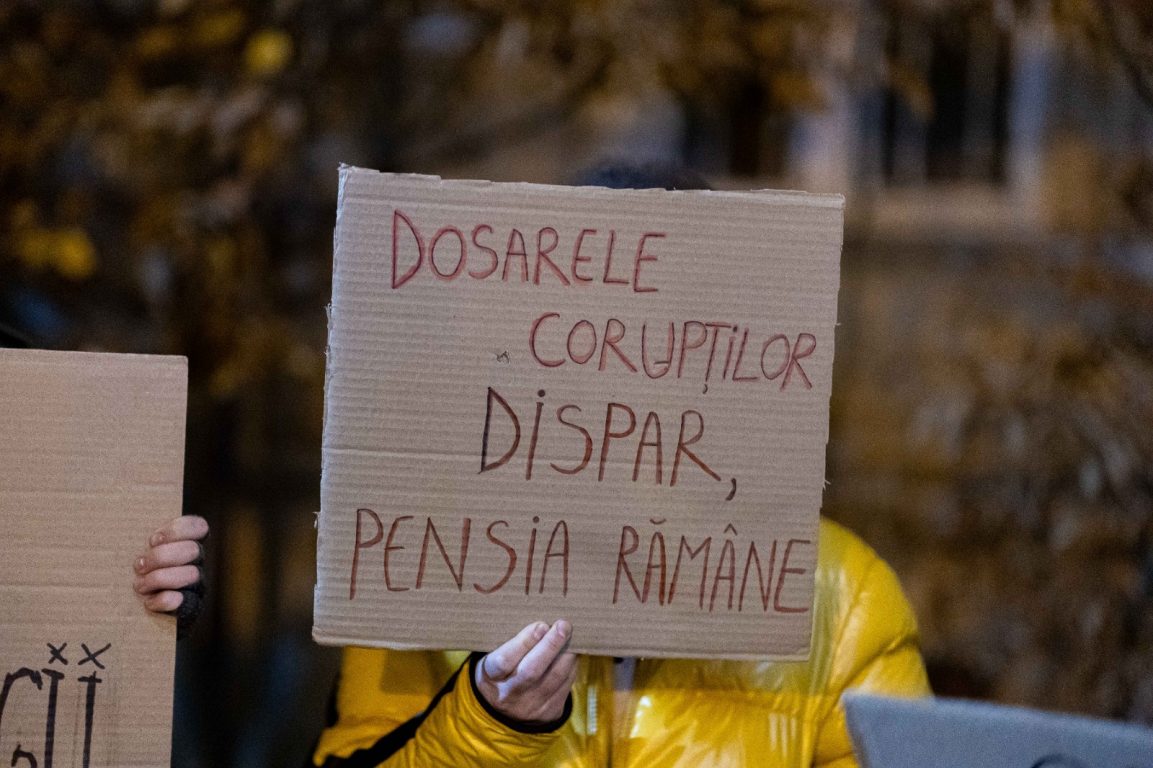 DOSARELE
CORUPȚILOR
DISPAR,
PENSIA RĂMÂNE